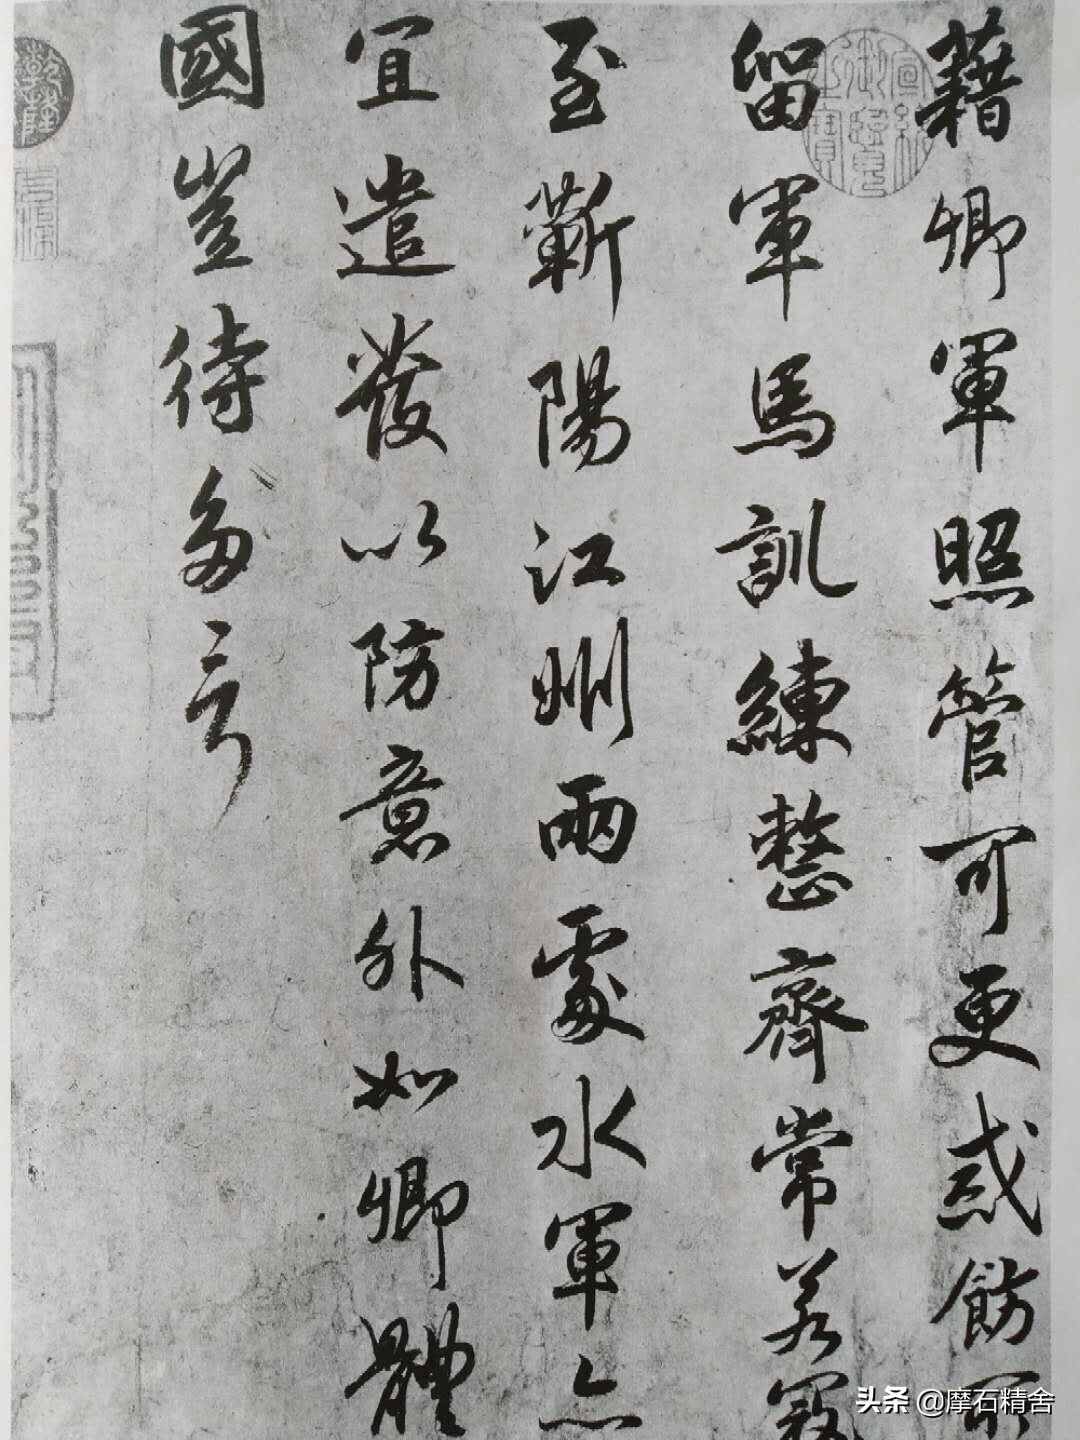 藉卿軍照管可更戒飭所
留軍馬訓練整齊常若寇
至蘄陽江州兩處水軍亦
宜遣發以防意外如卿體
國豈待多言
乾隆
宣統御覽之寶
头条 @摩石精舍